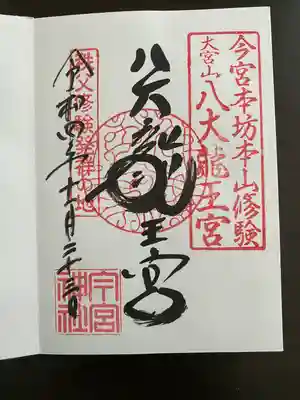 今宮本坊本山修験
大宮山
八大龍王宮
八大龍王宮
秩父修験発祥の地
令和四年十二月二十三日
今宮神社